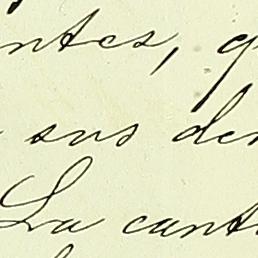 ntes, q
sus der
La cant